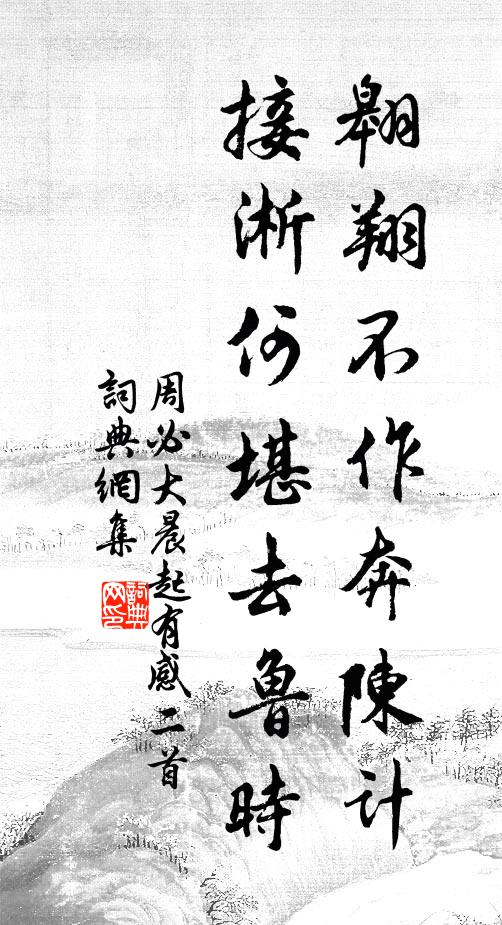 翺翔不作奔陳計
接淅何堪去魯時
周必大晨起有感二首
詞典網集
詞典
网印